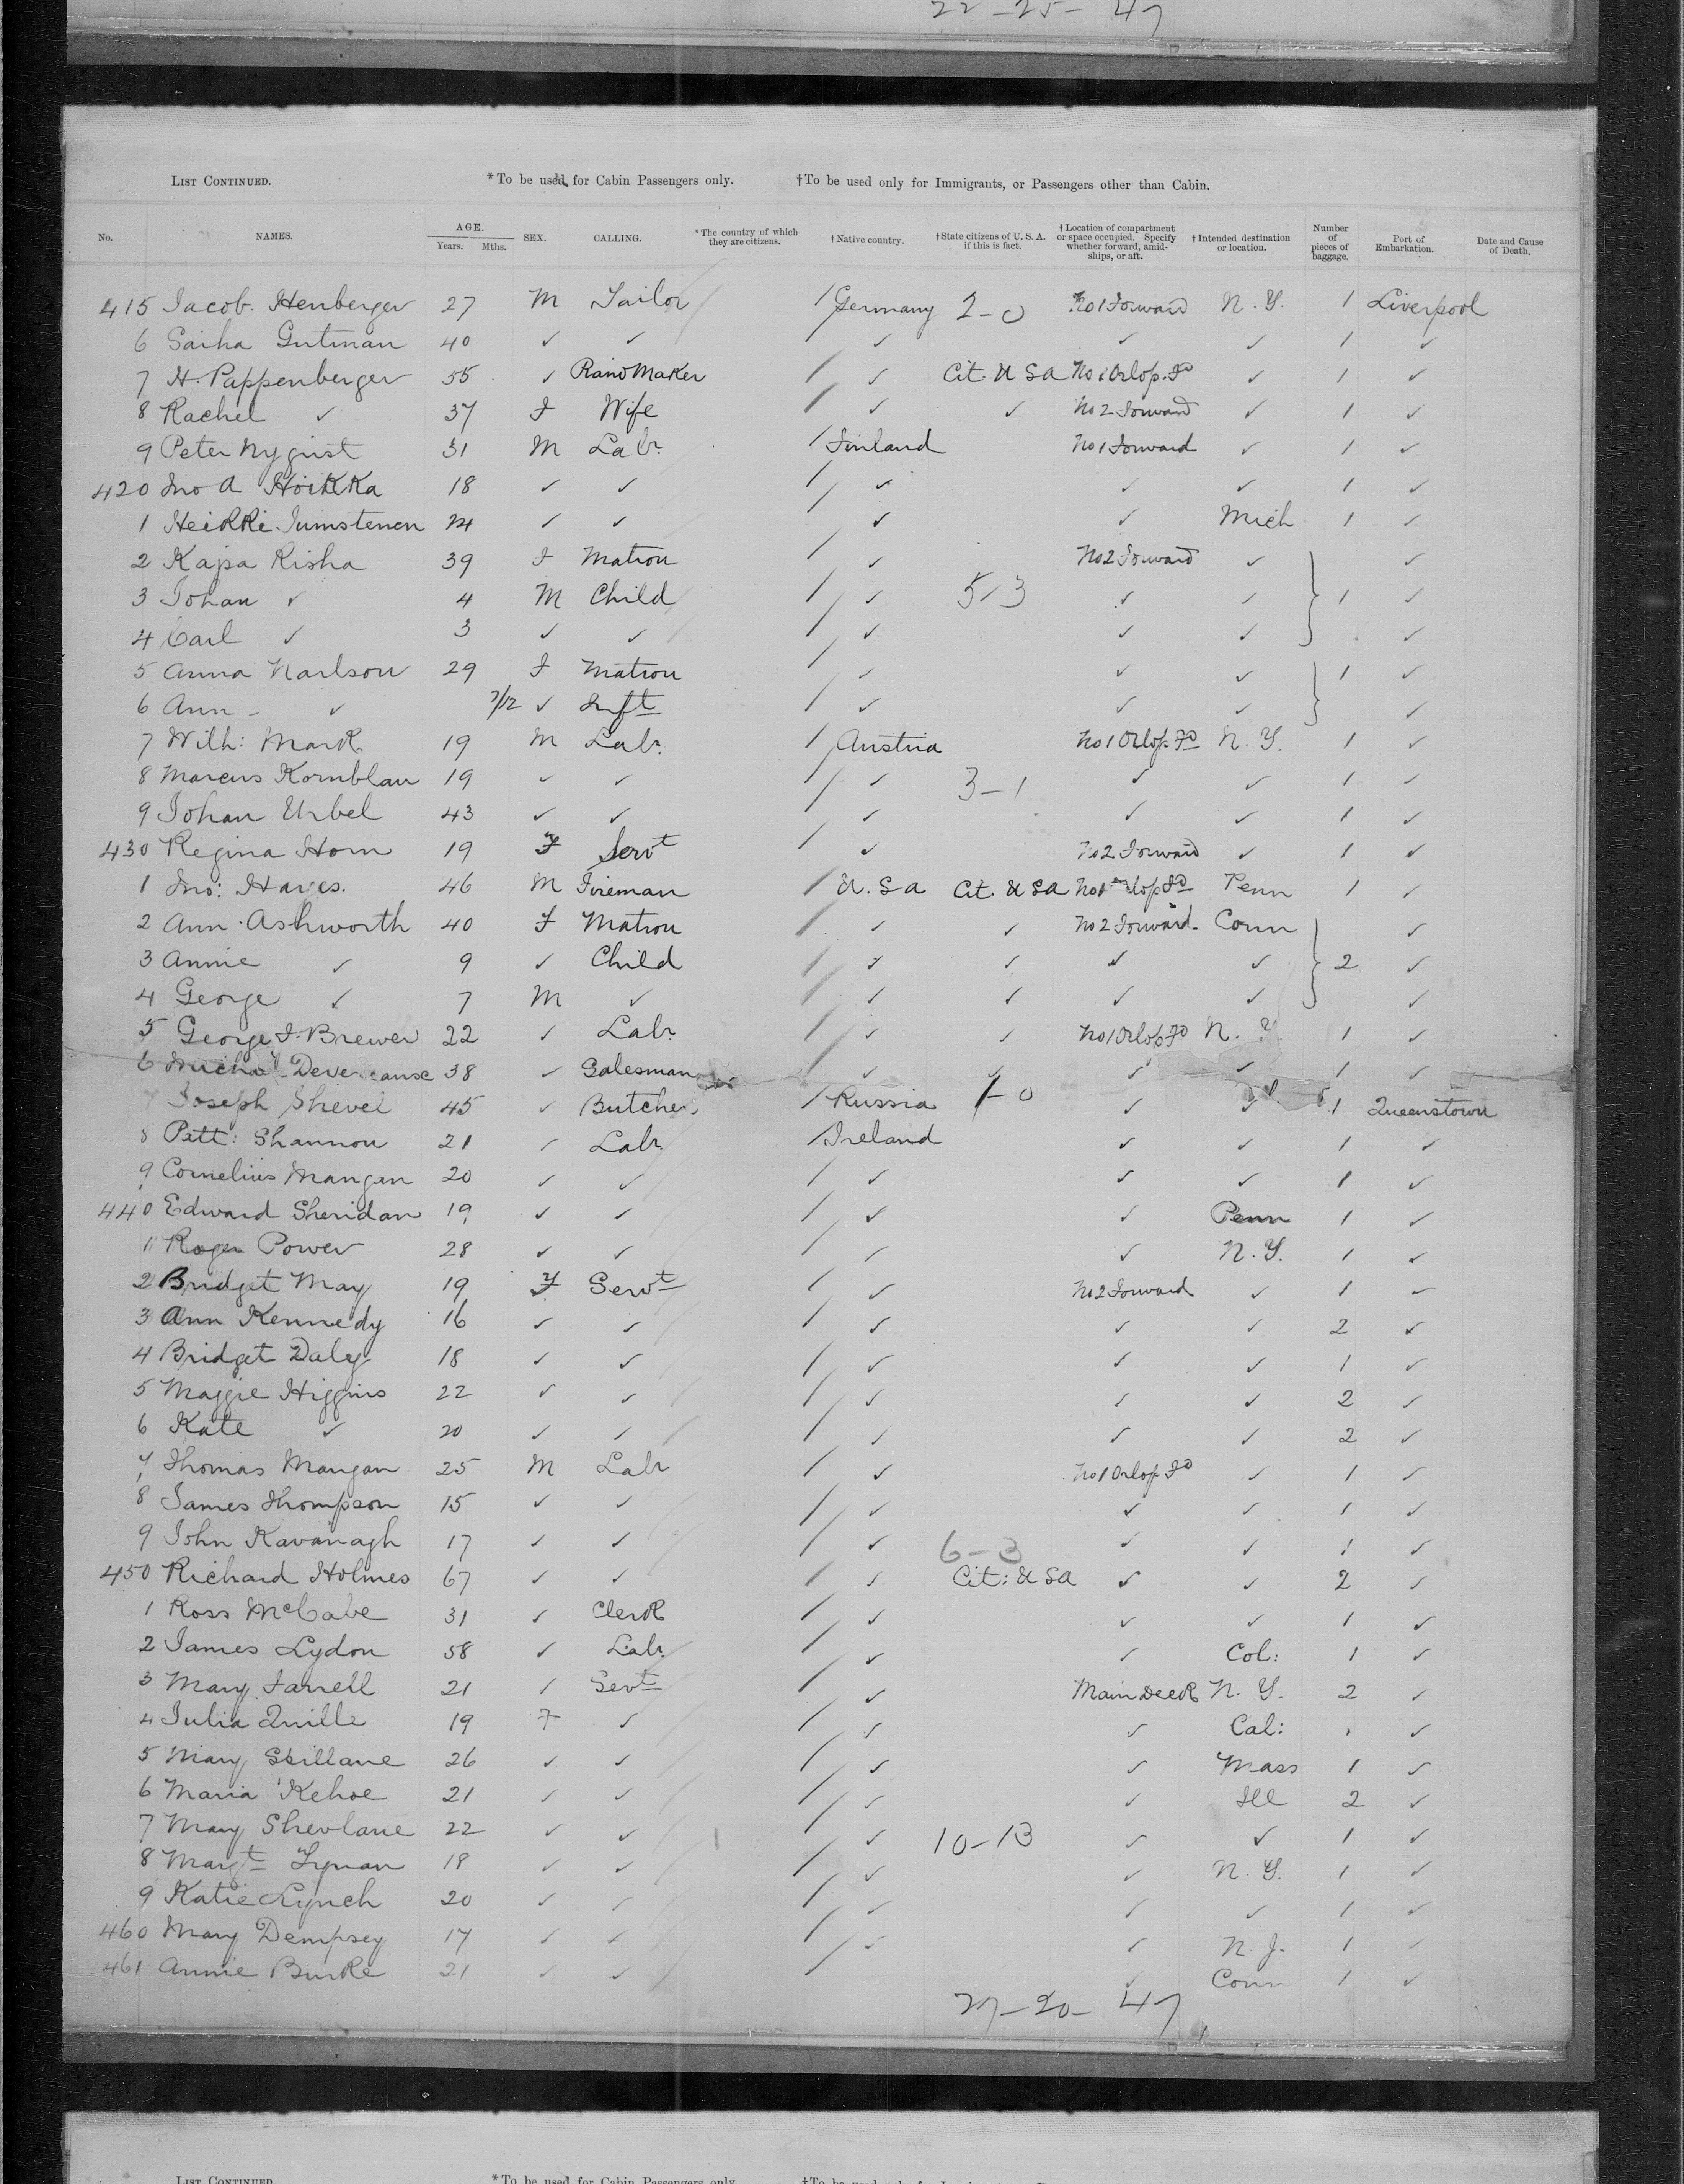 22-25- 47
List Continued. *To be used for Cabin Passengers only. †To be used only for Immigrants, or Passengers other than Cabin.
No. NAMES. AGE. Years. Mths. SEX. CALLING. *The country of which they are citizens. †Native country. †State citizens of U. S. A. if this is fact. †Location of compartment or space occupied. Specify whether forward, amidships, or aft. †Intended destination or location. Number of pieces of baggage. Port of Embarkation. Date and Cause of Death.
415 Jacob Henberger 27 M Tailor / Germany 2-0 No 1 Forward N. Y. 1 Liverpool
6 Saiha Gutman 40 ✓ ✓ / ✓ ✓ ✓ 1 ✓
7 H. Pappenberger 55 ✓ Piano Maker / ✓ Cit. U SA No 1 Orlop Fd ✓ 1 ✓
8 Rachel ✓ 37 F Wife / ✓ ✓ No 2 Forward ✓ 1 ✓
9 Peter Nyqvist 31 M Labr / Finland No 1 Forward ✓ 1 ✓
420 Jno A Hoikka 18 ✓ ✓ / ✓ ✓ ✓ 1 ✓
1 Heikki 24 ✓ ✓ ✓ ✓ Mich 1 ✓
2 Kajsa Risha 39 F Matron / ✓ No 2 Forward ✓ ✓
3 Johan ✓ 4 M Child / ✓ 5-3 ✓ ✓ 1 ✓
4 Carl ✓ 3 ✓ ✓ / ✓ ✓ ✓ ✓
5 Anna Narlson 29 F Matron / ✓ ✓ ✓ 1 ✓
6 Ann - ✓ 7/12 ✓ Inft / ✓ ✓ ✓ ✓
7 Wilh: Mark 19 M Labr / Austria No 1 Orlop Fd N. Y. 1 ✓
8 Marcus Kornblau 19 ✓ ✓ / ✓ 3-1 ✓ ✓ 1 ✓
9 Johan Urbel 43 ✓ ✓ / ✓ ✓ ✓ 1 ✓
430 Regina Horn 19 F Servt / ✓ No 2 Forward ✓ 1 ✓
1 Jno: Hayes. 46 M Fireman / U. S A Cit. U SA No 1 Orlop Fd Penn 1 ✓
2 Ann Ashworth 40 F Matron / ✓ ✓ No 2 Forward Conn ✓
3 Annie ✓ 9 ✓ Child / ✓ ✓ ✓ ✓ 2 ✓
4 George ✓ 7 M ✓ / ✓ ✓ ✓ ✓ ✓
5 George F. Brewer 22 ✓ Labr / ✓ ✓ No 1 Orlop Fd N. Y. 1 ✓
6 38 ✓ Salesman / ✓ ✓ ✓ ✓ 1 ✓
7 Joseph Shevel 45 ✓ Butcher / Russia 1-0 ✓ ✓ 1 Queenstown
8 Patt: Shannon 21 ✓ Labr / Ireland ✓ ✓ 1 ✓
9 Cornelius Mangan 20 ✓ ✓ / ✓ ✓ ✓ 1 ✓
440 Edward Sheridan 19 ✓ ✓ / ✓ ✓ Penn 1 ✓
1 Roger Power 28 ✓ ✓ / ✓ ✓ N. Y. 1 ✓
2 Bridget May 19 F Servt / ✓ No 2 Forward ✓ 1 ✓
3 Ann Kennedy 16 ✓ ✓ / ✓ ✓ ✓ 2 ✓
4 Bridget Daley 18 ✓ ✓ / ✓ ✓ ✓ 1 ✓
5 Maggie Higgins 22 ✓ ✓ / ✓ ✓ ✓ 2 ✓
6 Kate ✓ 20 ✓ ✓ / ✓ ✓ ✓ 2 ✓
7 Thomas Mangan 25 M Labr / ✓ No 1 Orlop Fd ✓ 1 ✓
8 James Thompson 15 ✓ ✓ / ✓ ✓ ✓ 1 ✓
9 John Kavanagh 17 ✓ ✓ / ✓ 6-3 ✓ ✓ 1 ✓
450 Richard Holmes 67 ✓ ✓ / ✓ Cit: U SA ✓ ✓ 2 ✓
1 Ross McCabe 31 ✓ Clerk / ✓ ✓ ✓ 1 ✓
2 James Lydon 58 ✓ Labr / ✓ ✓ Col: 1 ✓
3 Mary Farrell 21 / Servt / ✓ Main Deck N. Y. 2 ✓
4 Julia Quille 19 F ✓ / ✓ ✓ Cal: 1 ✓
5 Mary Skillane 26 ✓ ✓ / ✓ ✓ Mass 1 ✓
6 Maria Kehoe 21 ✓ ✓ / ✓ ✓ Ill 2 ✓
7 Mary Shevlane 22 ✓ ✓ / ✓ 10-13 ✓ ✓ 1 ✓
8 Margt Lynan 18 ✓ ✓ / ✓ ✓ N. Y. 1 ✓
9 Katie Lynch 20 ✓ ✓ / ✓ ✓ ✓ 1 ✓
460 Mary Dempsey 17 ✓ ✓ / ✓ ✓ N. J. 1 ✓
461 Annie Burke 21 ✓ ✓ / ✓ Conn 1 ✓
27-20- 47
List Continued. *To be used for Cabin Passengers only.